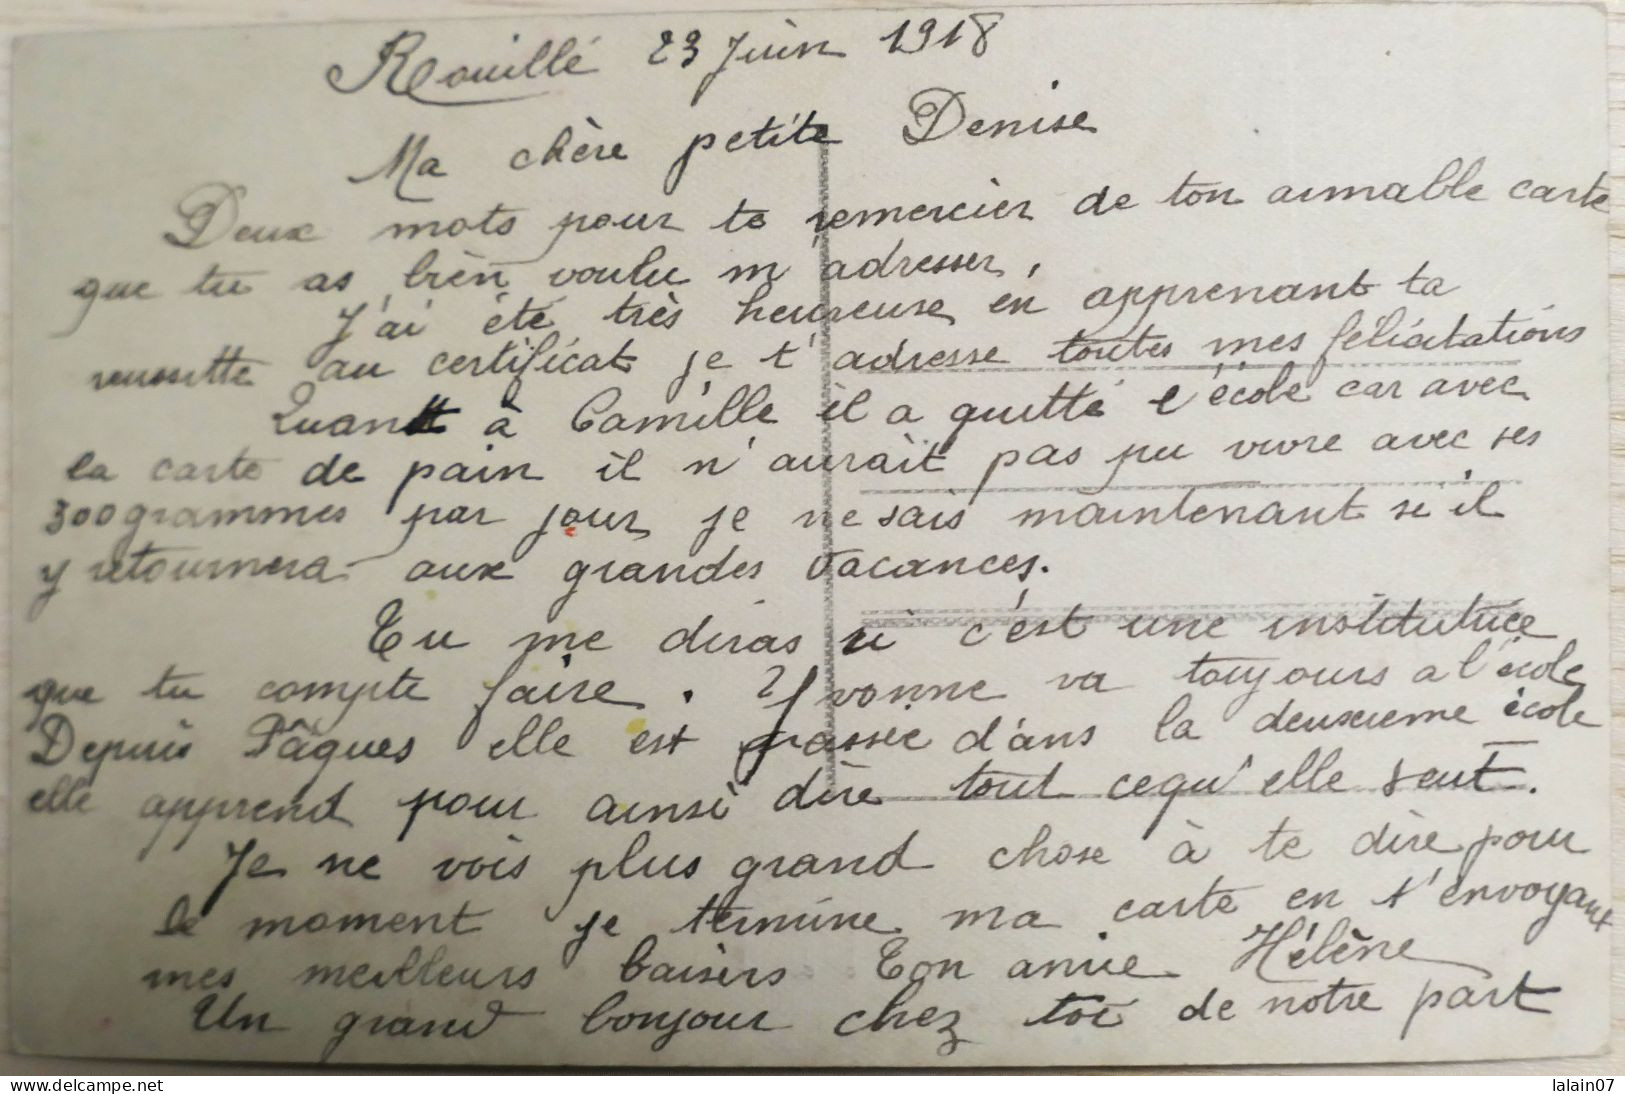 Rouillé 23 Juin 1918
Ma chère petite Denise
Deux mots pour te remercier de ton aimable carte
que tu as bien voulu m'adresser,
J'ai été très heureuse en apprenant ta
reussitte au certificat je t'adresse toutes mes félicitations
Quant à Camille il a quitté l'école car avec
la carte de pain il n'aurait pas pu vivre avec ses
300 grammes par jour je ne sais maintenant si il
y retournera aux grandes vacances.
Tu me diras si c'est une institutrice
que tu compte faire. Yvonne va toujours a l'école
Depuis Pâques elle est passée dans la deuxieme école
elle apprend pour ainsi dire tout cequ'elle veut.
Je ne vois plus grand chose à te dire pour
le moment je termine ma carte en t'envoyant
mes meilleurs baisers Ton amie Hélène
Un grand bonjour chez toi de notre part
www.delcampe.net
lalain07